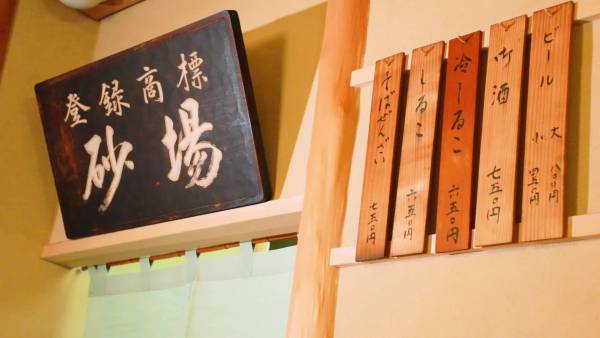 登録商標
砂場
ビール 大 八〇〇円
小 四五〇円
御酒 七五〇円
冷しるこ 六五〇円
しるこ 六五〇円
そばぜんざい 七五〇円